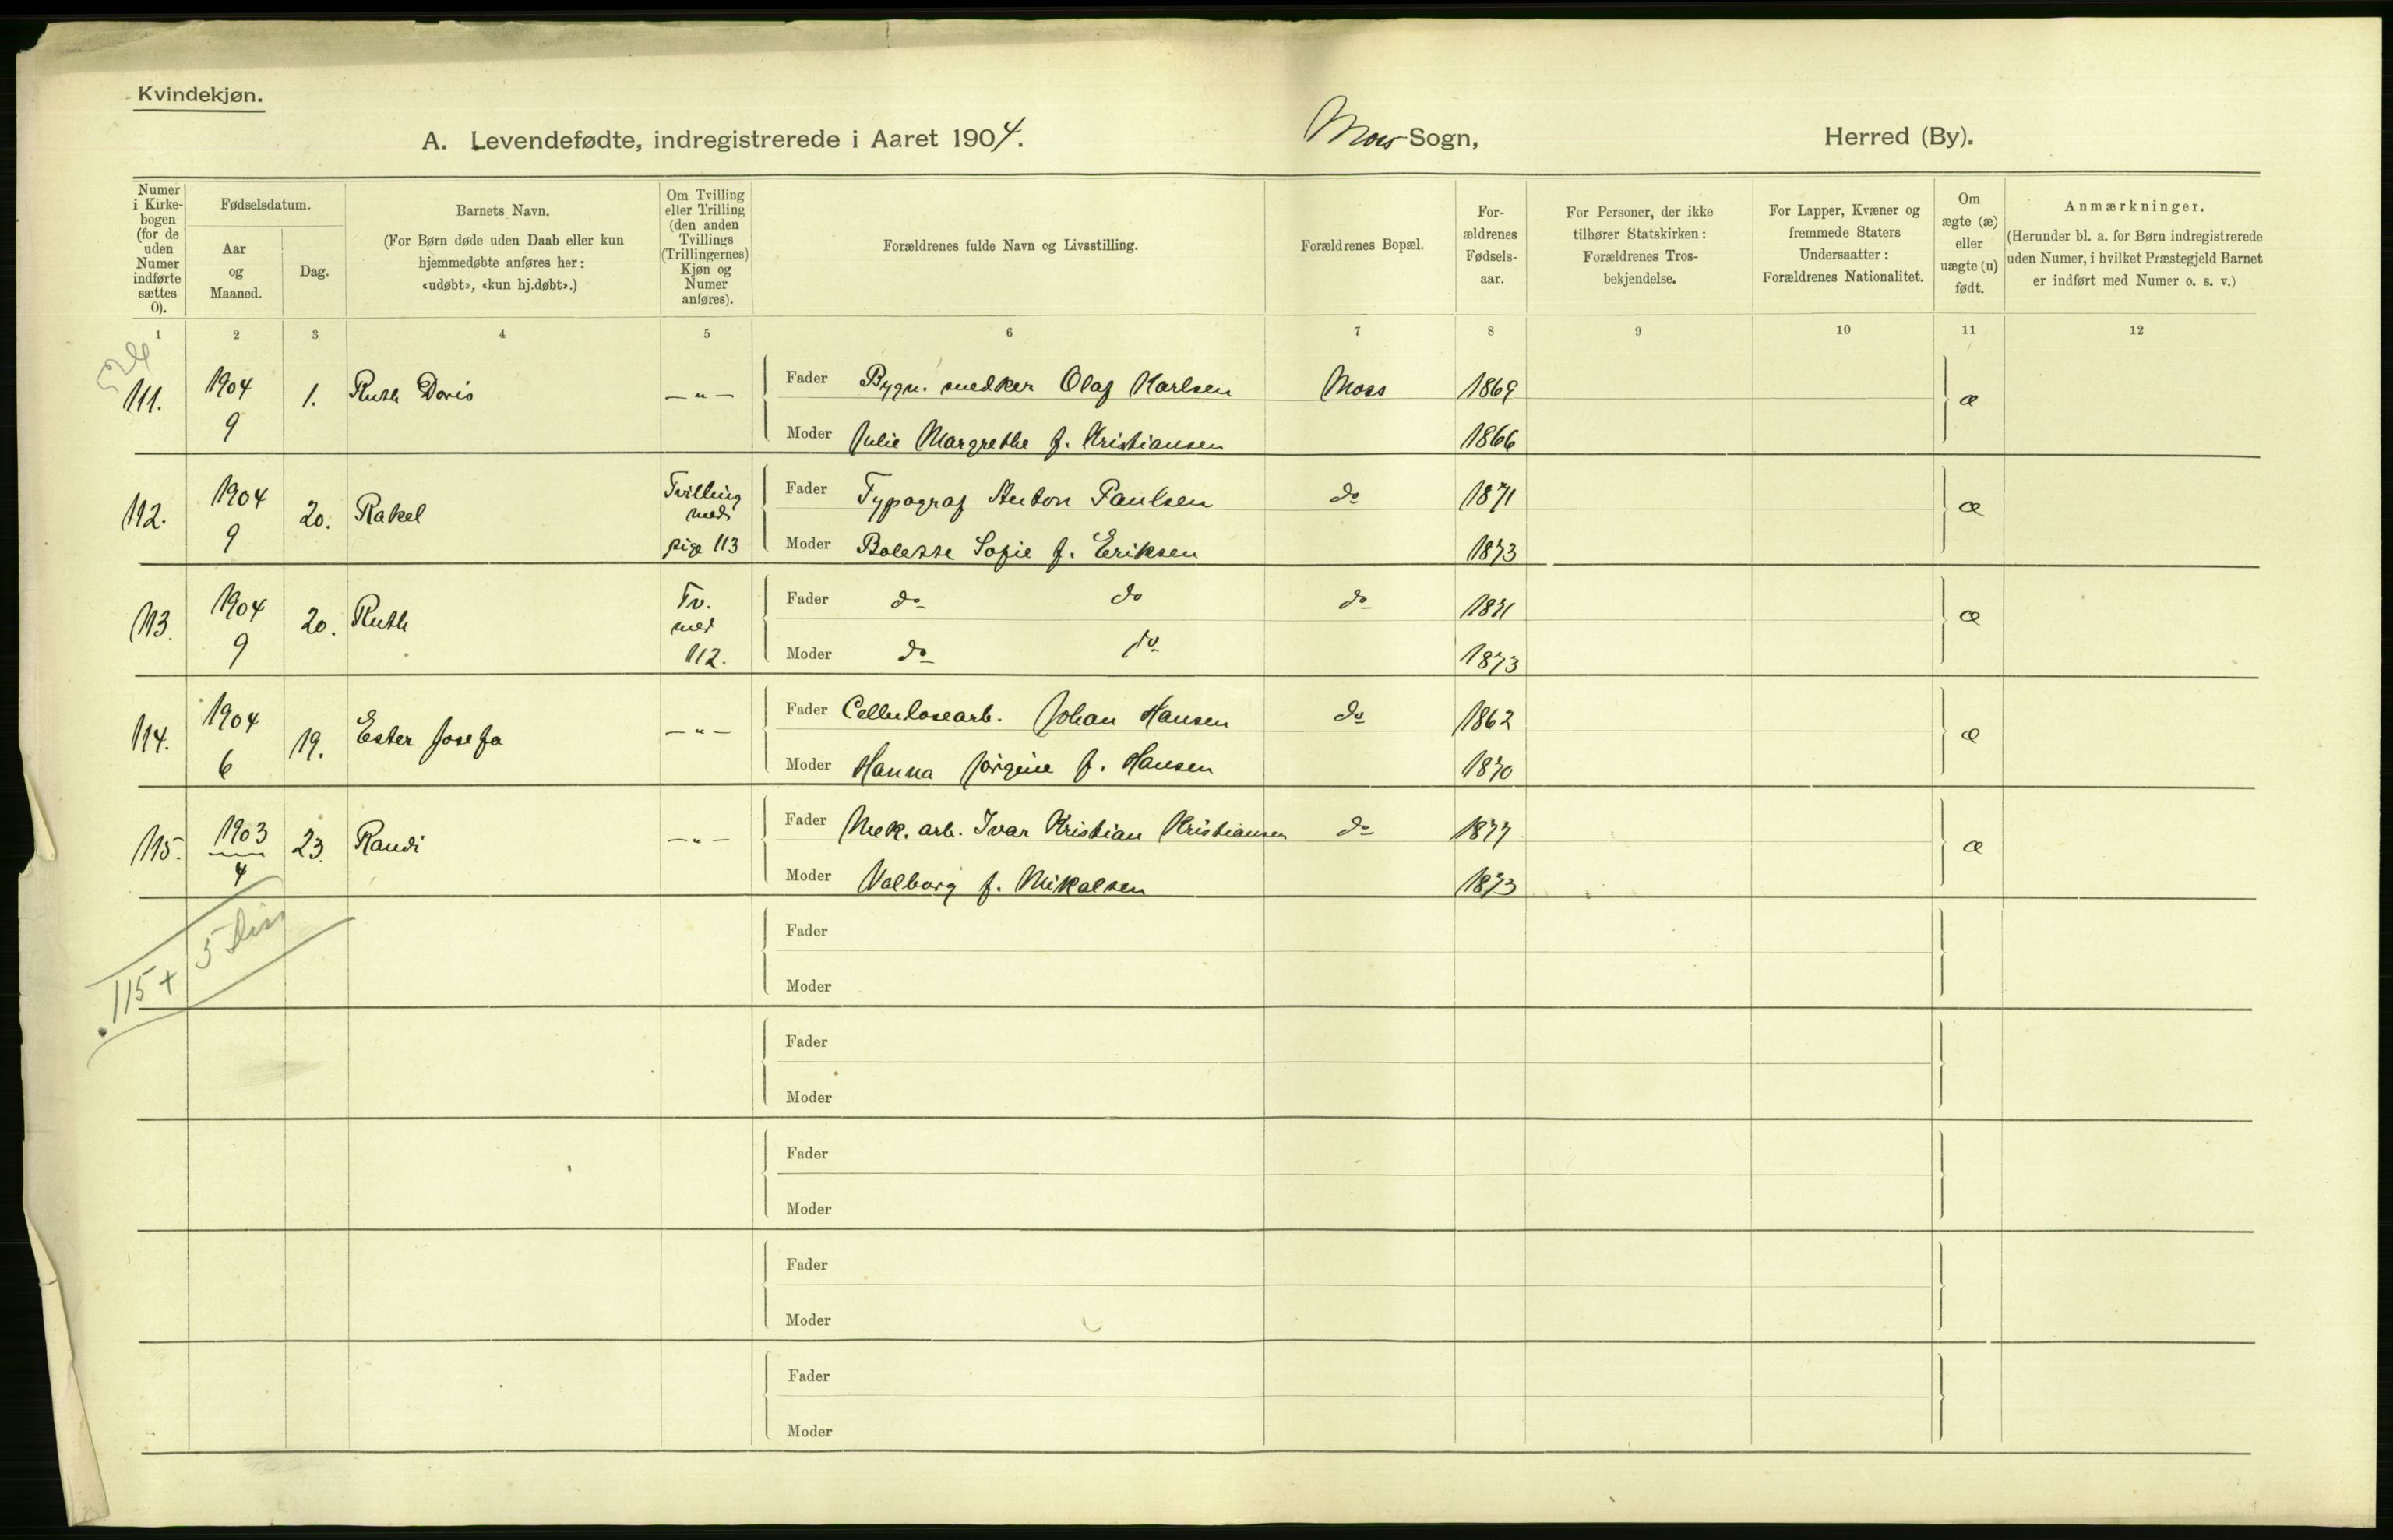 Kvindekjøn.
A. Levendefødte, indregistrerede i Aaret 1904. Moss Sogn, Herred (By).
Numer i Kirke-bogen (for de uden Numer indførte sættes 0).
Fødselsdatum.
Aar og Maaned.
Dag.
Barnets Navn.
(For Børn døde uden Daab eller kun
hjemmedøbte anføres her:
«udøbt», «kun hj.døbt».)
Om Tvilling
eller Trilling
(den anden
Tvillings
(Trillingernes)
Kjøn og
Numer
anføres).
Forældrenes fulde Navn og Livsstilling.
Forældrenes Bopæl.
For-
ældrenes
Fødsels-
aar.
For Personer, der ikke
tilhører Statskirken:
Forældrenes Tros-
bekjendelse.
For Lapper, Kvæner og
fremmede Staters
Undersaatter:
Forældrenes Nationalitet.
Om
ægte (æ)
eller
uægte (u)
født.
Anmærkninger.
(Herunder bl. a. for Børn indregistrerede
uden Numer, i hvilket Præstegjeld Barnet
er indført med Numer o. s. v.)
1 2 3 4 5 6 7 8 9 10 11 12
111. 1904 9 1. Ruth Doris — " — Fader Bygn. snedker Olaf Karlsen Moss 1869 æ
Moder Julie Margrethe f. Kristiansen 1866
112. 1904 9 20. Rakel Tvilling med pige 113 Fader Typograf Anton Paulsen do 1871 æ
Moder Bolette Sofie f. Eriksen 1873
113. 1904 9 20. Ruth Tv. med 112. Fader do do do 1871 æ
Moder do do 1873
114. 1904 6 19. Ester Josefa — " — Fader Cellulosearb. Johan Hansen do 1862 æ
Moder Hanna Jørgine f. Hansen 1870
115. 1903 4 23. Randi — " — Fader Mek. arb. Ivar Kristian Kristiansen do 1877 æ
Moder Valborg f. Mikalsen 1873
115 + 5
Fader
Moder
Fader
Moder
Fader
Moder
Fader
Moder
Fader
Moder